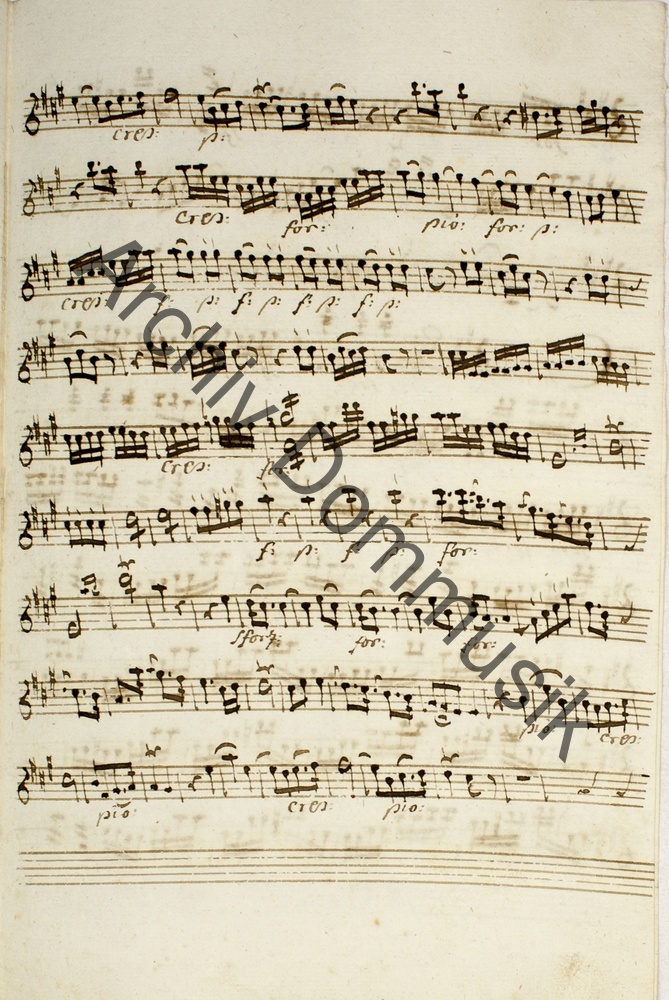 cres: p:
cres: for: pio: for: p:
cres: f: p: f: p: f: p: f: p:
cres: for:
f: p: f: p: for:
sforz: for: for:
pio cres:
pio: cres: pio:
Archiv Dommusik